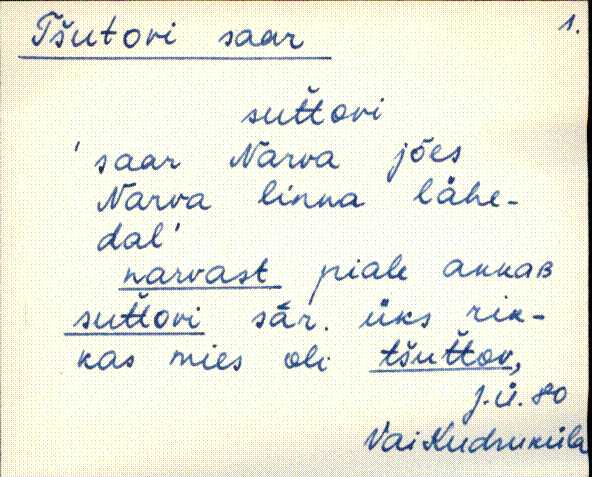 1.
Tšutovi saar
suťťovi
'saar Narva jões
Narva linna lähe-
dal'
narvast piale akkaB
suťťovi sār. üks rik-
kas mies oli tšuťťov,
J.Ü. 80
Vai Kudruküla